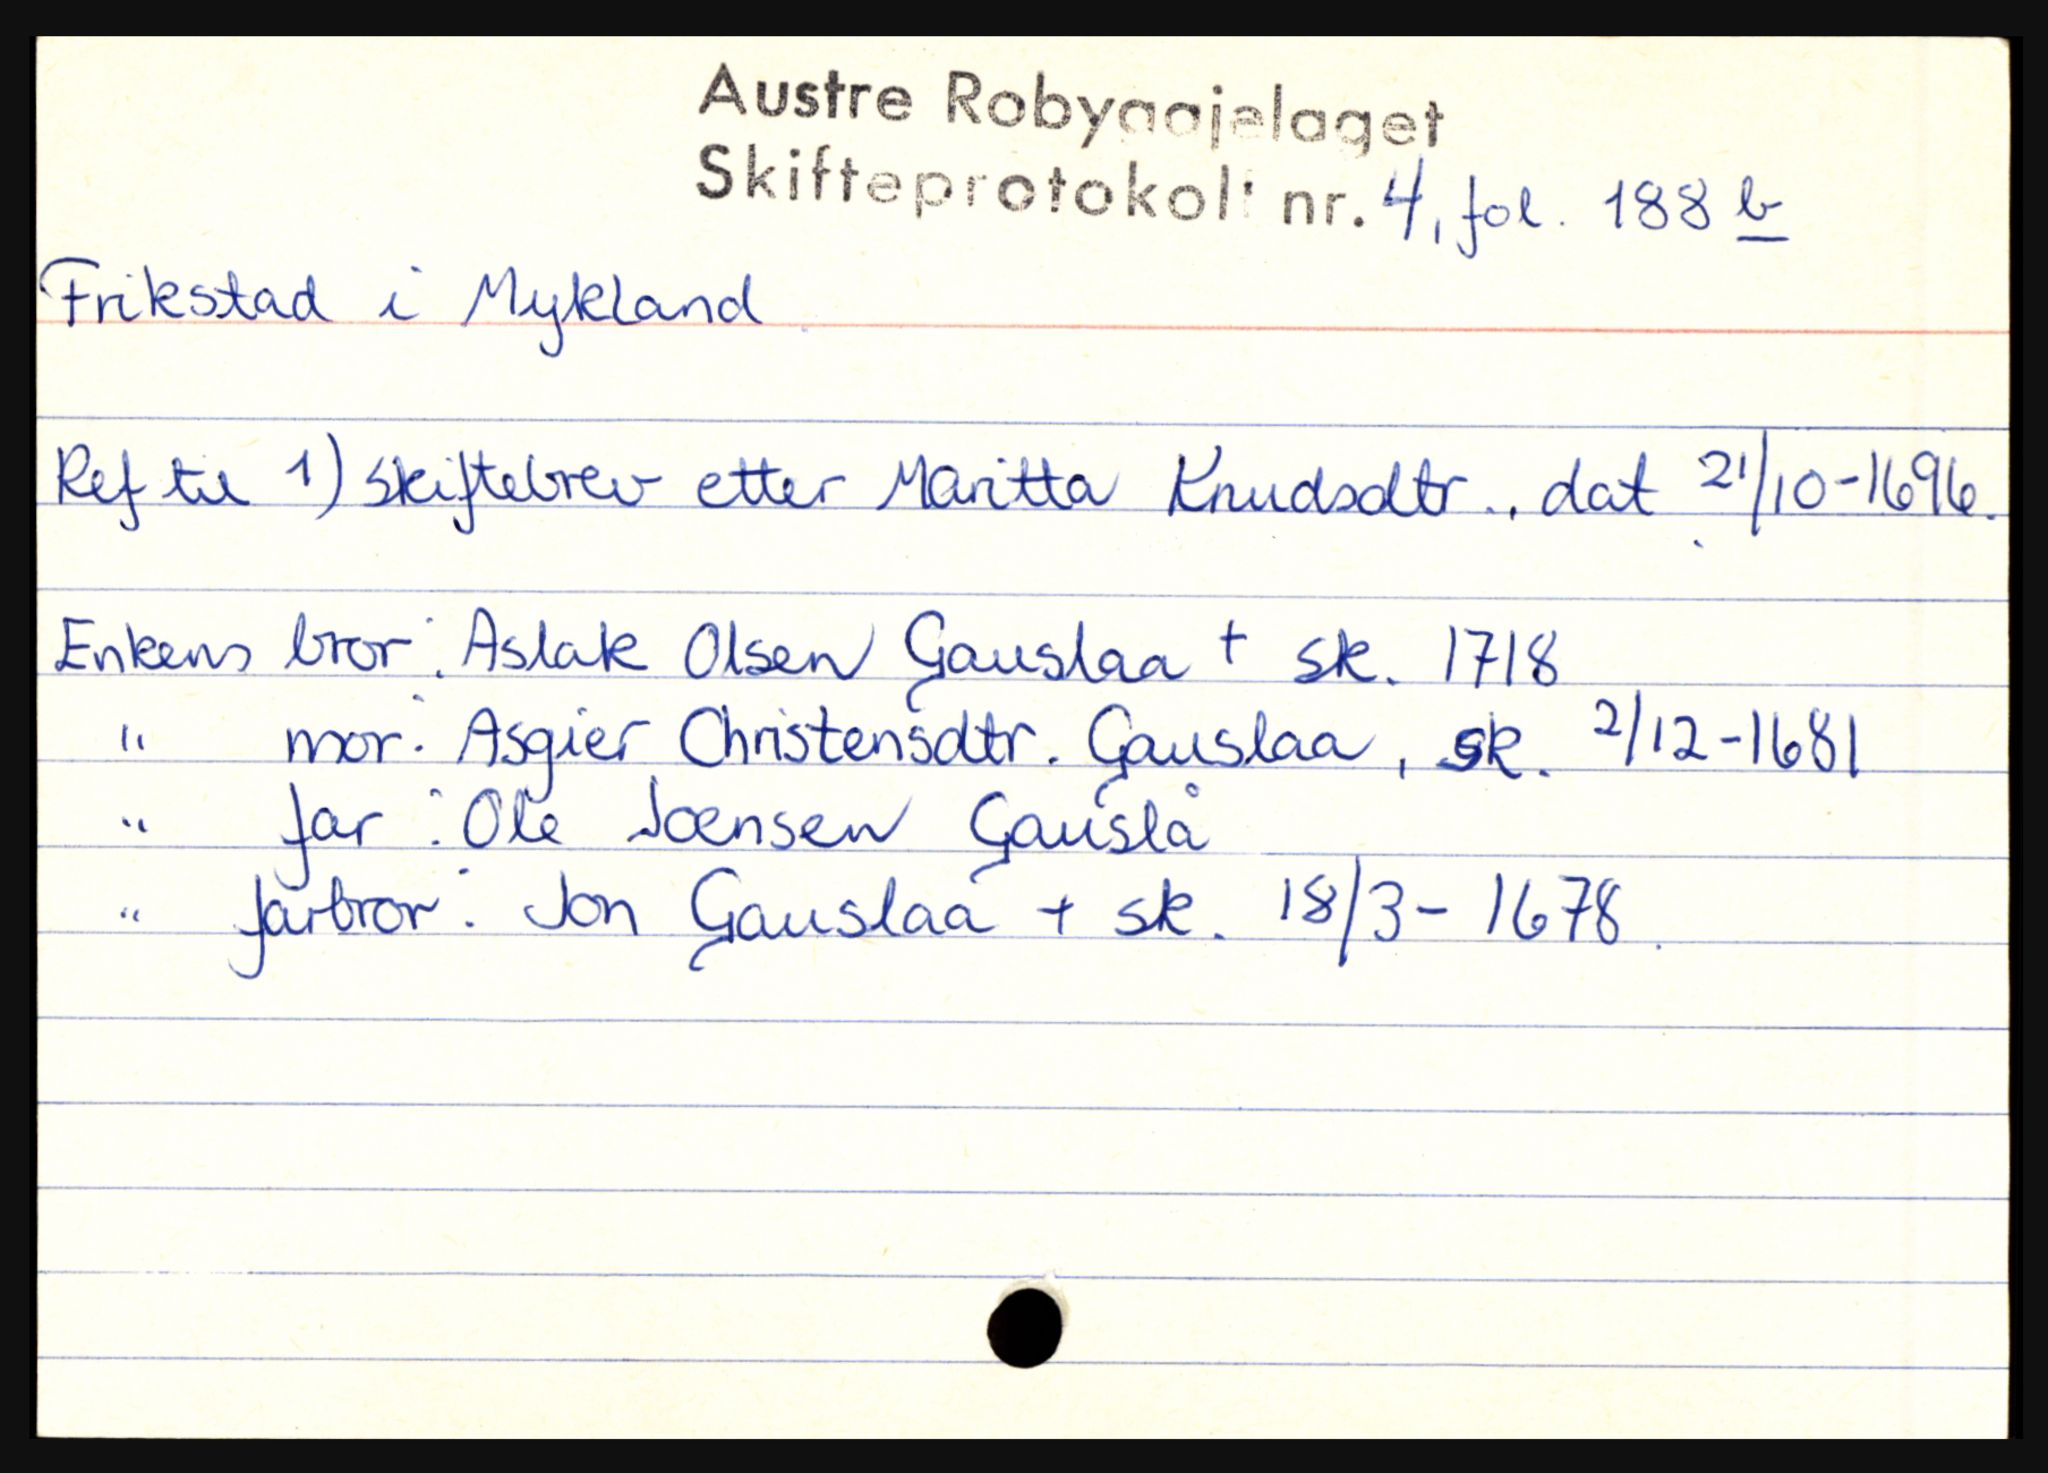 Austre Robyggjelaget
Skifteprotokoll nr. 4, fol. 188 b
Frikstad i Mykland
Ref til 1) skiftebrev etter Maritta Knudsdtr., dat 21/10-1696.
Enkens bror: Aslak Olsen Gauslaa + sk. 1718
" mor: Asgier Christensdtr. Gauslaa, sk. 2/12-1681
" far: Ole Joensen Gauslå
" farbror: Jon Gauslaa + sk. 18/3-1678.